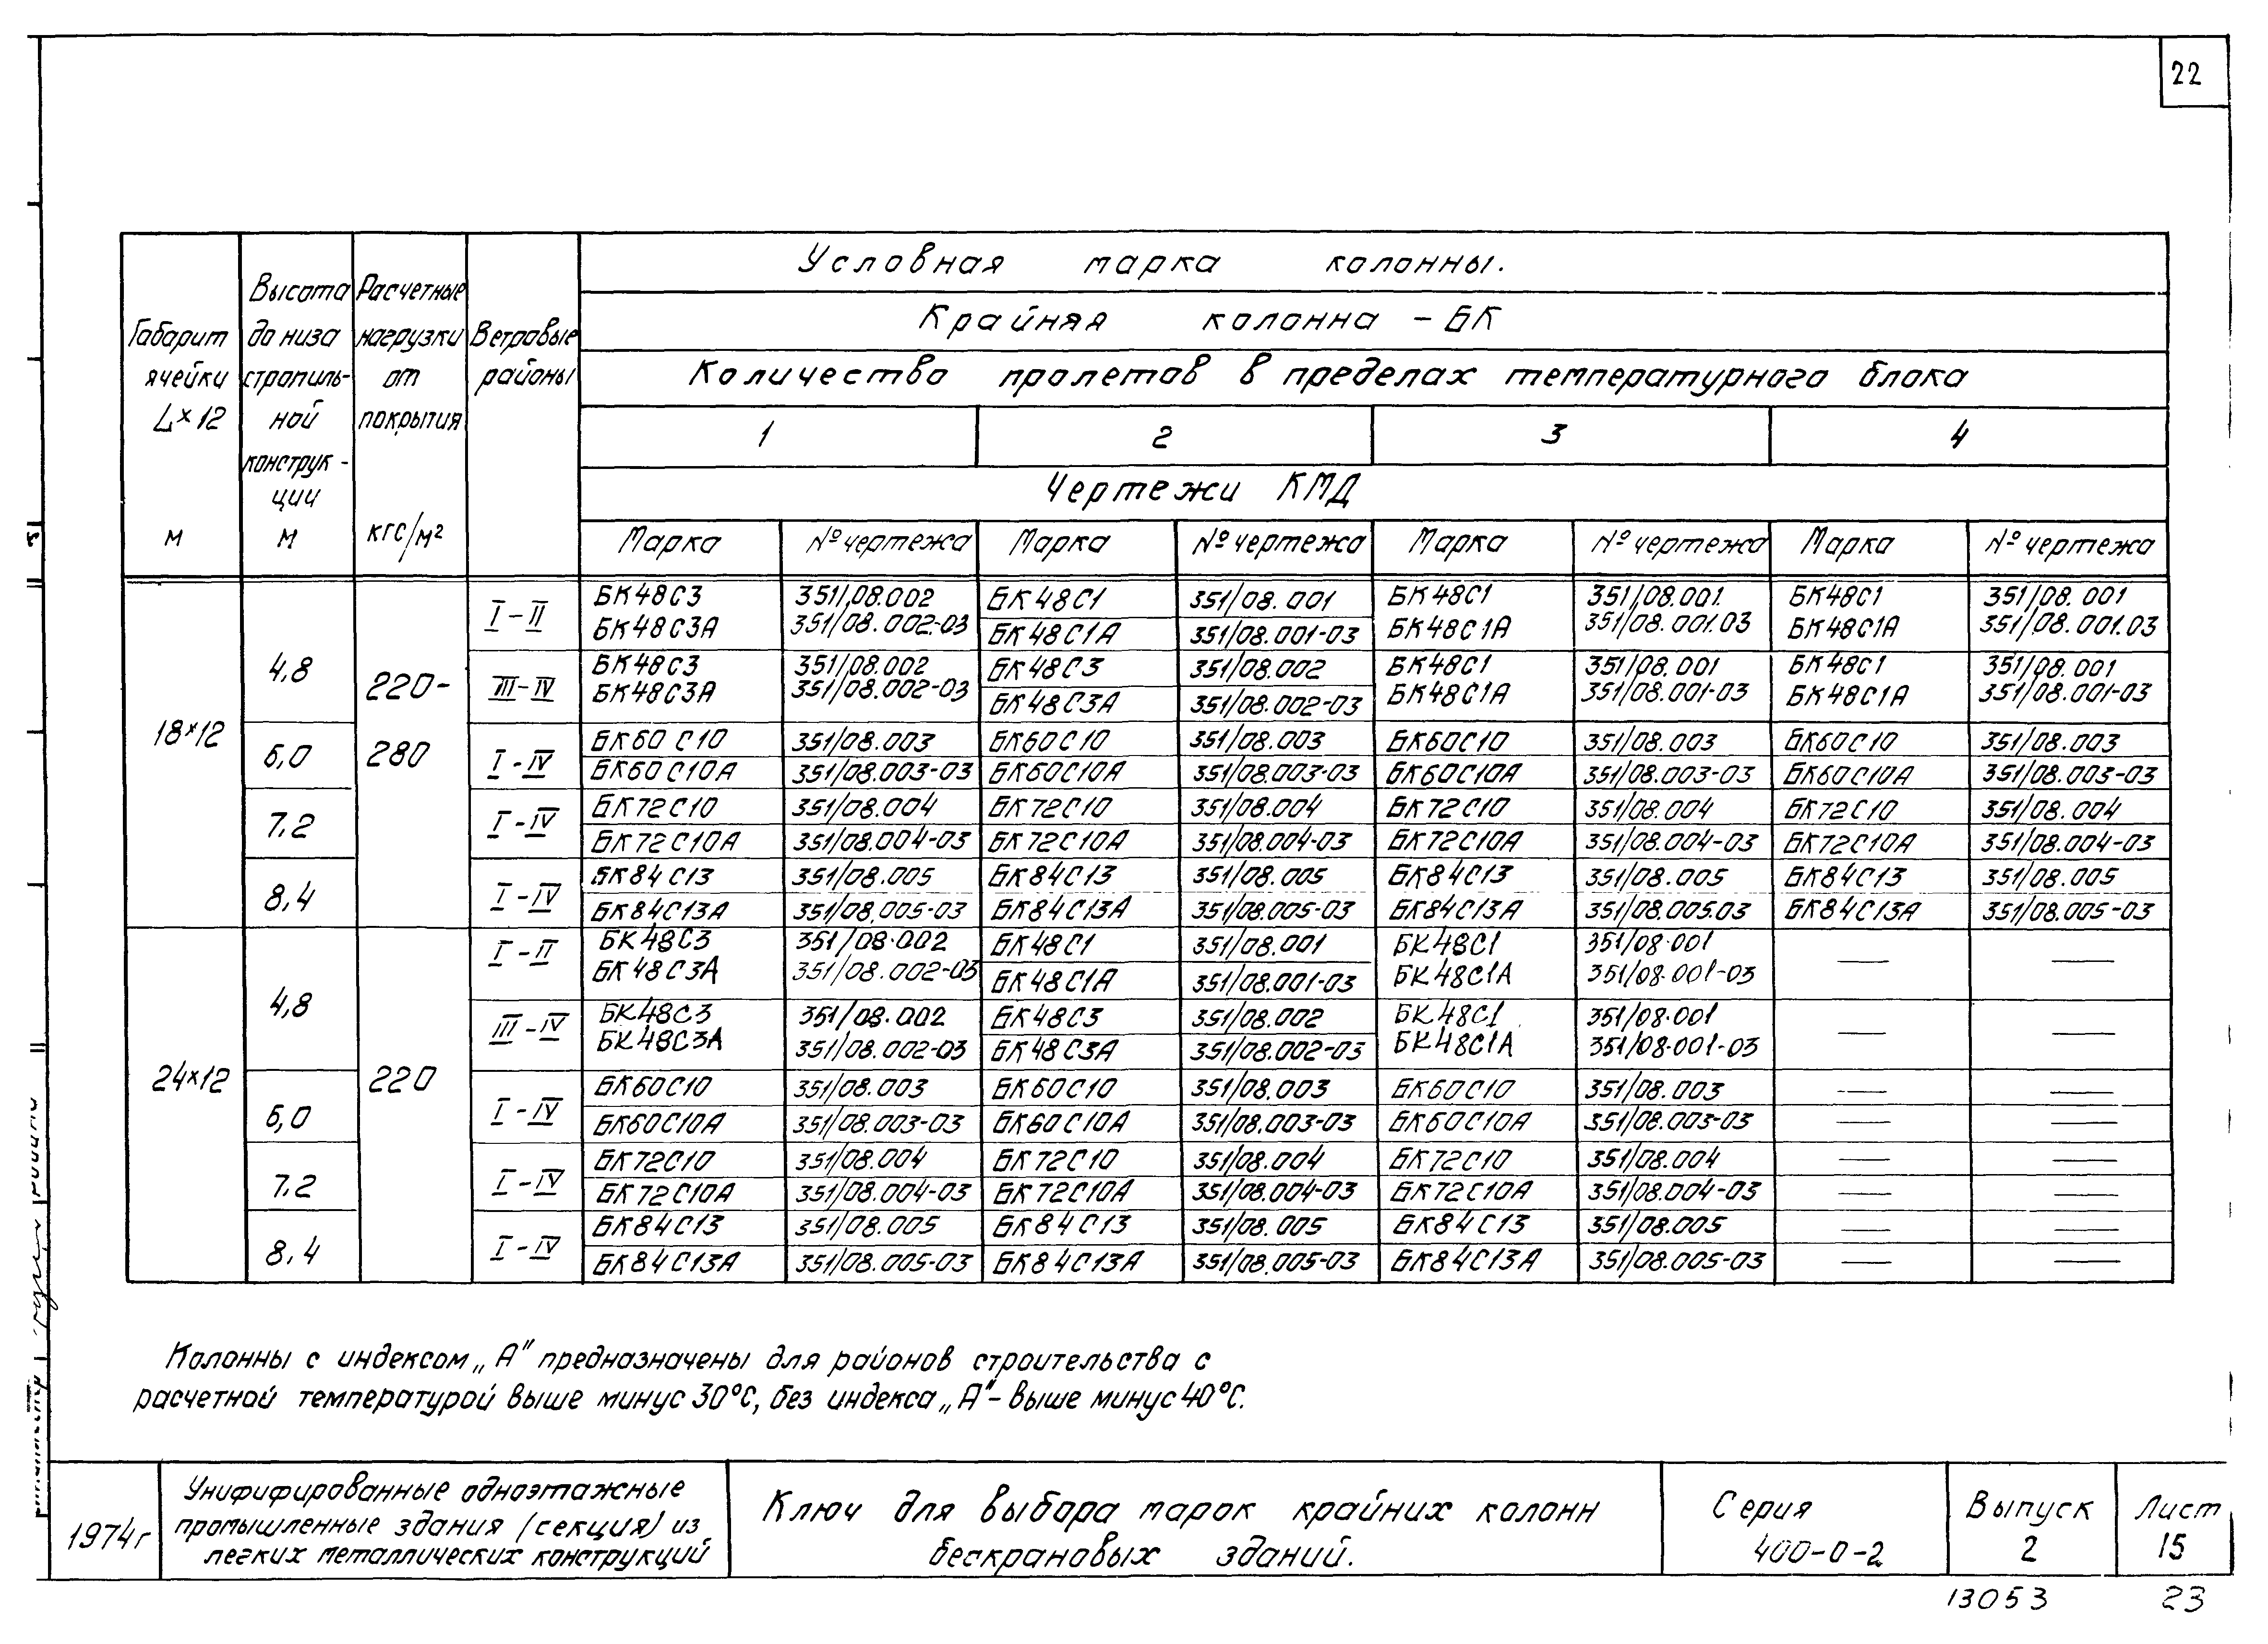 22
Условная марка колонны.
Крайняя колонна - БК
Количество пролетов в пределах температурного блока
1 2 3 4
Чертежи КМД
Габарит ячейки L×12 м
Высота до низа стропиль-
ной конструк-
ции м
Расчетные нагрузки от покрытия кгс/м²
Ветровые районы
Марка № чертежа Марка № чертежа Марка № чертежа Марка № чертежа
18×12 4,8 220- 280 I-II БК48С3 351/08.002 БК48С1 351/08.001 БК48С1 351/08.001. БК48С1 351/08.001
БК48С3А 351/08.002-03 БК48С1А 351/08.001-03 БК48С1А 351/08.001.03 БК48С1А 351/08.001.03
III-IV БК48С3 351/08.002 БК48С3 351/08.002 БК48С1 351/08.001 БК48С1 351/08.001
БК48С3А 351/08.002-03 БК48С3А 351/08.002-03 БК48С1А 351/08.001-03 БК48С1А 351/08.001-03
6,0 I-IV БК60С10 351/08.003 БК60С10 351/08.003 БК60С10 351/08.003 БК60С10 351/08.003
БК60С10А 351/08.003-03 БК60С10А 351/08.003-03 БК60С10А 351/08.003-03 БК60С10А 351/08.003-03
7,2 I-IV БК72С10 351/08.004 БК72С10 351/08.004 БК72С10 351/08.004 БК72С10 351/08.004
БК72С10А 351/08.004-03 БК72С10А 351/08.004-03 БК72С10А 351/08.004-03 БК72С10А 351/08.004-03
8,4 I-IV БК84С13 351/08.005 БК84С13 351/08.005 БК84С13 351/08.005 БК84С13 351/08.005
БК84С13А 351/08.005-03 БК84С13А 351/08.005-03 БК84С13А 351/08.005.03 БК84С13А 351/08.005-03
24×12 4,8 220 I-II БК48С3 351/08.002 БК48С1 351/08.001 БК48С1 351/08.001 — —
БК48С3А 351/08.002-03 БК48С1А 351/08.001-03 БК48С1А 351/08.001-03
III-IV БК48С3 351/08.002 БК48С3 351/08.002 БК48С1 351/08.001 — —
БК48С3А 351/08.002-03 БК48С3А 351/08.002-03 БК48С1А 351/08.001-03
6,0 I-IV БК60С10 351/08.003 БК60С10 351/08.003 БК60С10 351/08.003 — —
БК60С10А 351/08.003-03 БК60С10А 351/08.003-03 БК60С10А 351/08.003-03 — —
7,2 I-IV БК72С10 351/08.004 БК72С10 351/08.004 БК72С10 351/08.004 — —
БК72С10А 351/08.004-03 БК72С10А 351/08.004-03 БК72С10А 351/08.004-03 — —
8,4 I-IV БК84С13 351/08.005 БК84С13 351/08.005 БК84С13 351/08.005 — —
БК84С13А 351/08.005-03 БК84С13А 351/08.005-03 БК84С13А 351/08.005-03 — —
Колонны с индексом „А" предназначены для районов строительства с
расчетной температурой выше минус 30°С, без индекса „А"- выше минус 40°С.
1974г
Унифицированные одноэтажные
промышленные здания (секция) из
легких металлических конструкций
Ключ для выбора марок крайних колонн
бескрановых зданий.
Серия
400-0-2
Выпуск
2
Лист
15
13053 23